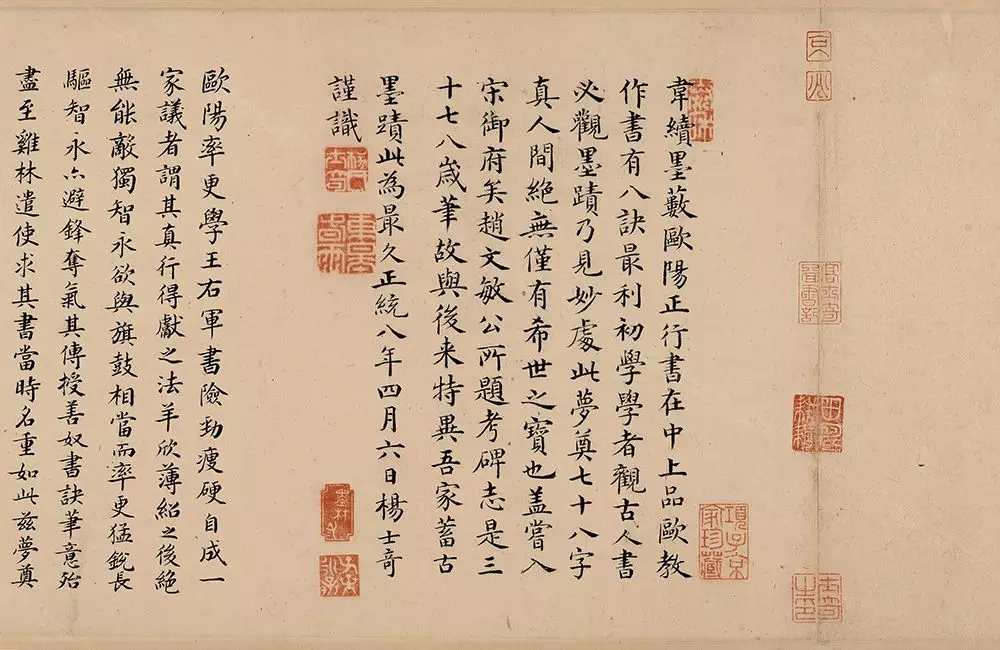 韋續墨藪歐陽正行書在中上品歐教
作書有八訣最利初學學者觀古人書
必觀墨蹟乃見妙處此夢奠七十八字
真人間絕無僅有希世之寶也盖嘗入
宋御府矣趙文敏公所題考碑志是三
十七八歲筆故與後来特異吾家蓄古
墨蹟此為最久正統八年四月六日楊士奇
謹識
歐陽率更學王右軍書險勁瘦硬自成一
家議者謂其真行得獻之法羊欣薄紹之後絕
無能敵獨智永欲與旗鼓相當而率更猛銳長
驅智永亦避鋒奪氣其傳授善奴書訣筆意殆
盡至雞林遣使求其書當時名重如此兹夢奠
項子京
家珍藏
墨林
士奇